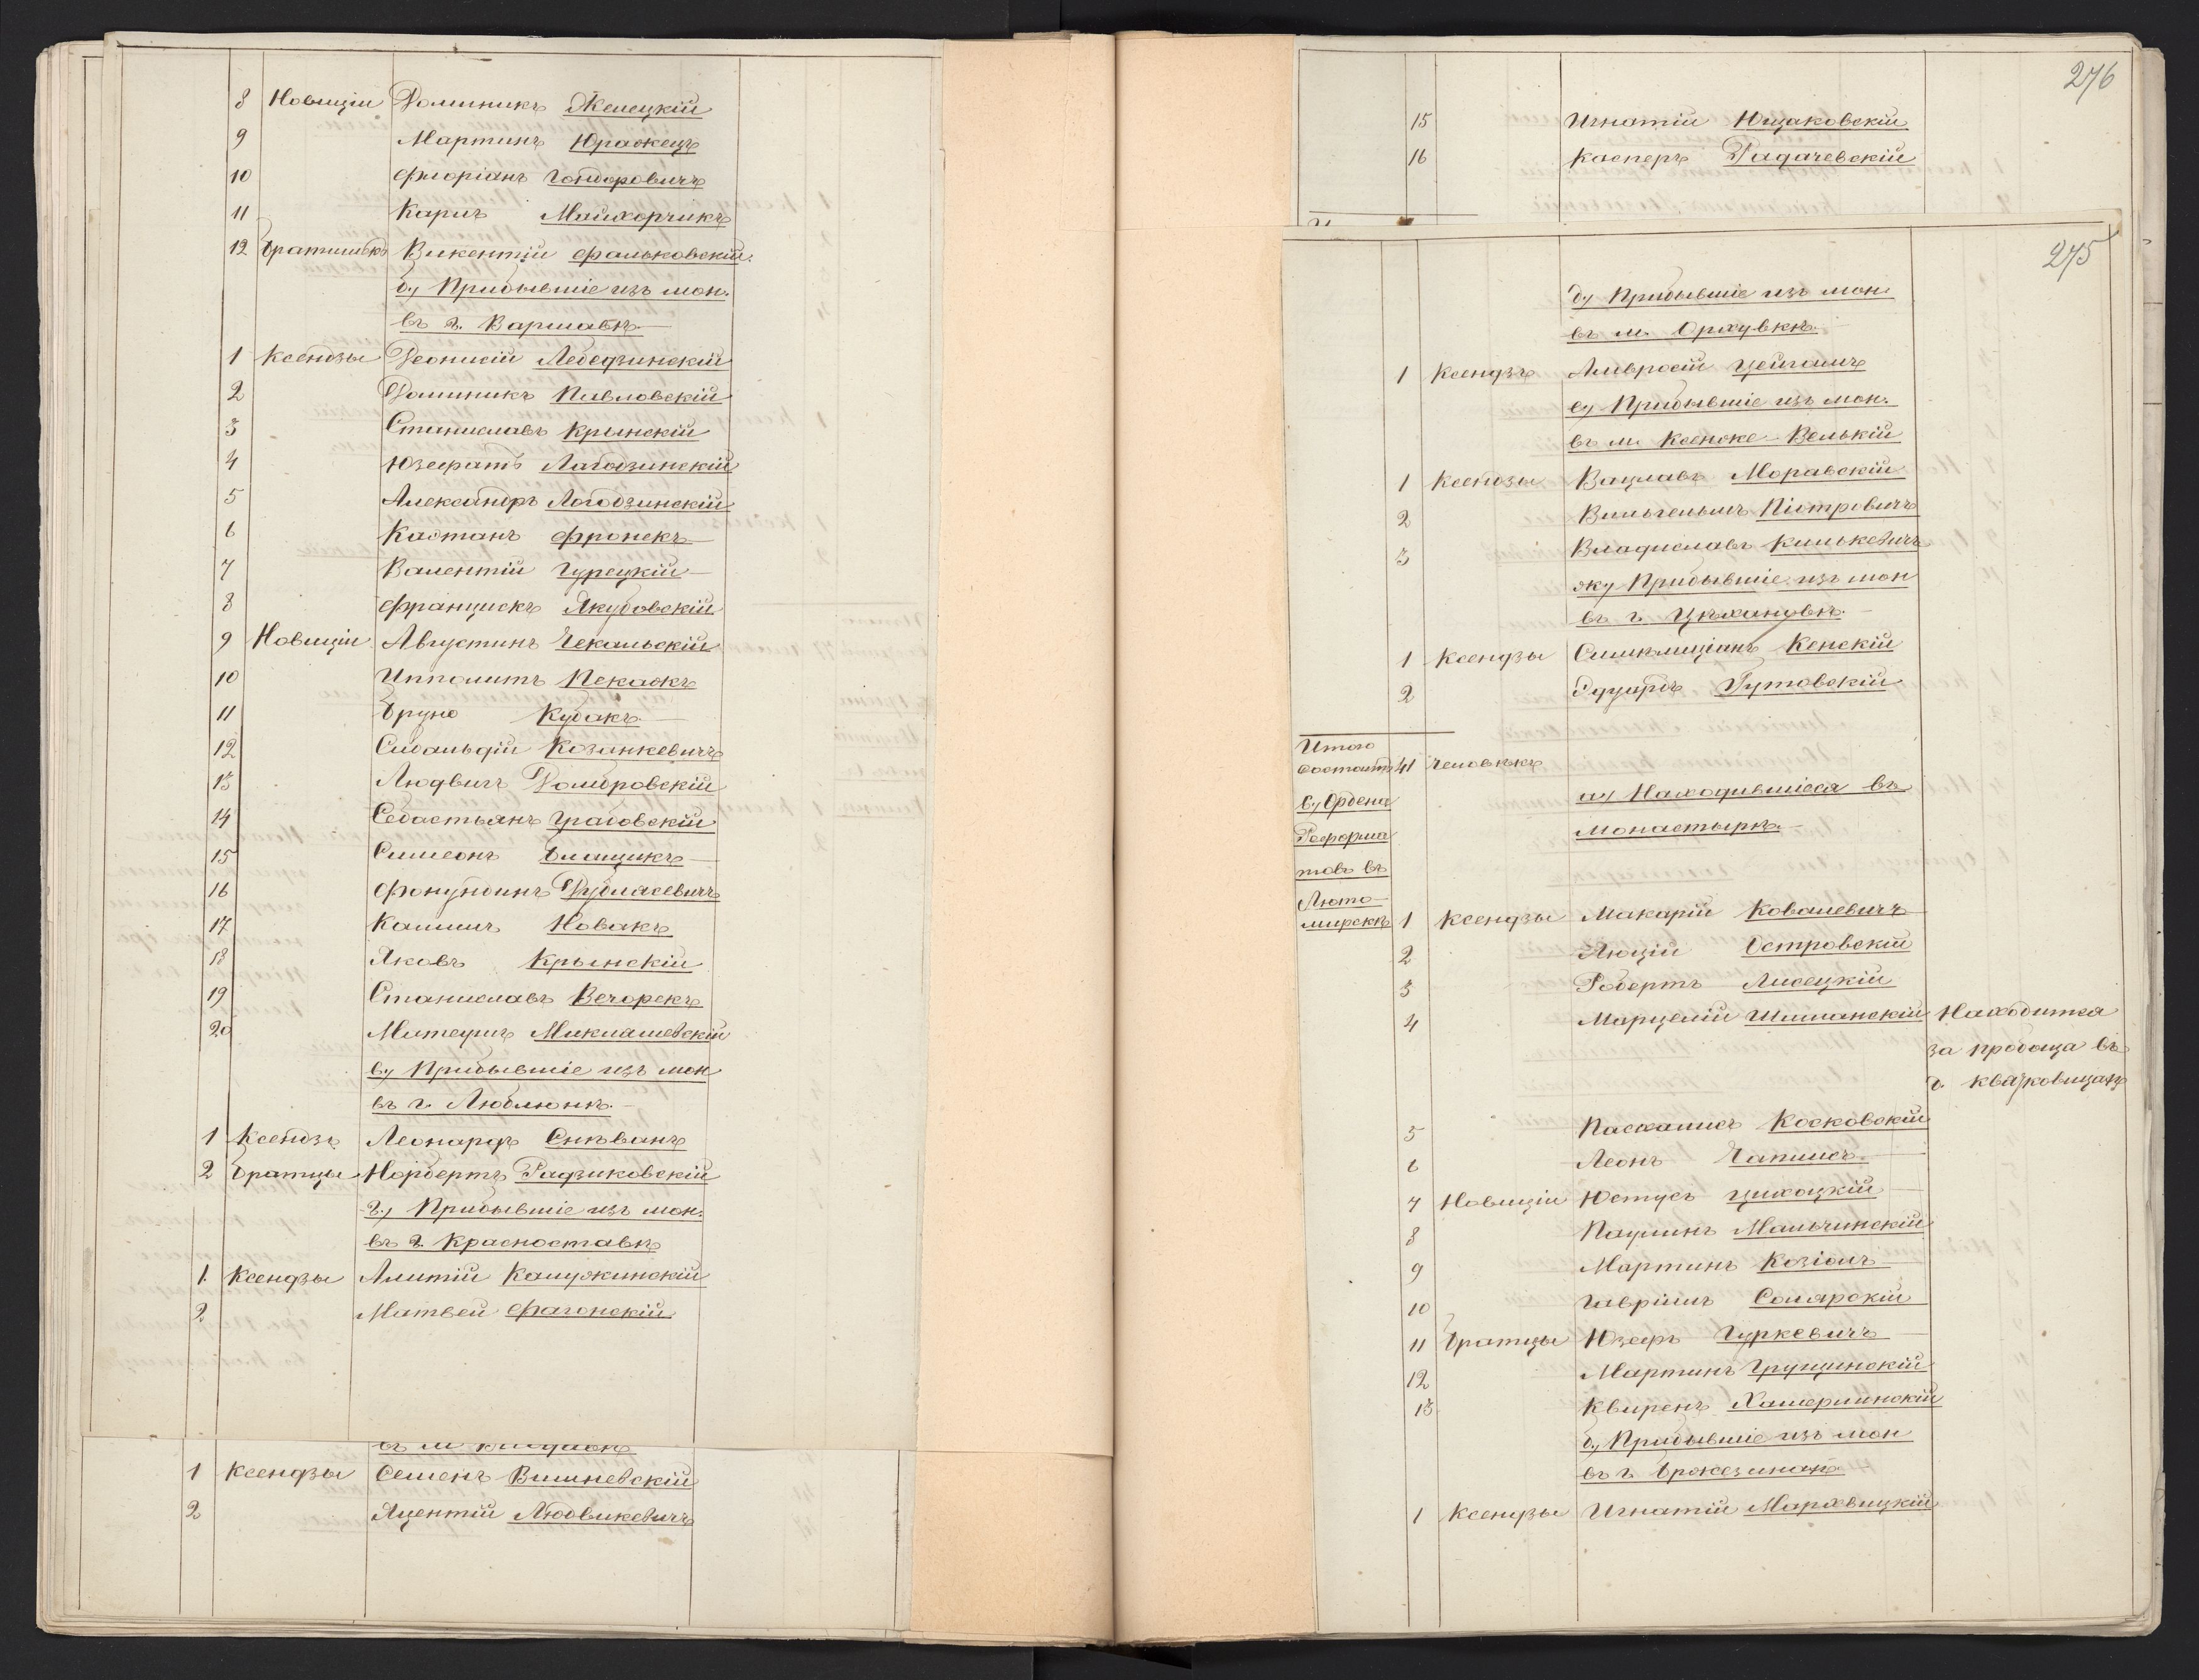 8 Новиціи Доминикъ Желецкій
9 Мартинъ Юражецъ
10 Флоріанъ Гондоровичъ
11 Карлъ Малхорчикъ
12 Братишекъ Викентій Фальковскій
б.) Прибывшіе изъ мон.
въ г. Варшавѣ
1 Ксендзы Деонисій Лебедзинскій
2 Доминикъ Павловскій
3 Станиславъ Крынскій
4 Юзефатъ Лагодзинскій
5 Александръ Логодзинскій
6 Каэтанъ Фронекъ
7 Валентій Гурецкій
8 Францискъ Якубовскій
9 Новиціи Августинъ Чекальскій
10 Ипполитъ Пекажъ
11 Бруно Кубакъ
12 Сивальдій Козанкевичъ
13 Людвигъ Домбровскій
14 Себастьянъ Грабовскій
15 Симеонъ Блащикъ
16 Дубласевичъ
17 Камилъ Новакъ
18 Яковъ Крынскій
19 Станиславъ Вечорекъ
20 Матеушъ Миклашевскій
в.) Прибывшіе изъ мон
въ г. Люблинѣ
1 Ксендзъ Леонардъ Снѣванъ
2 Братцы Норбертъ Радзиковскій
г.) Прибывшіе изъ мон.
въ г. Красноставѣ
1. Ксендзы Алитій Калужинскій
2. Матвей Фагонскій
1 Ксендзы Семенъ Вишневскій
2 Яцентій Людвикевичъ
276
15 Игнатій Ющаковскій
16 Касперъ Радачевскій
275
д.) Прибывшіе изъ мон
въ м. Орхувкѣ
1 Ксендзъ Амвросій Цейгомъ
е.) Прибывшіе изъ мон.
въ м. Ксенже-Велькій
1 Ксендзы Вацлавъ Моравскій
2 Вильгельмъ Піотровичъ
3 Владиславъ Килькевичъ
ж.) Прибывшіе изъ мон
въ г. Цѣхановѣ
1 Ксендзы Кенскій
2 Эдуардъ Гутовскій
Итого
состоитъ 41 человѣкъ
в.) Ордена а.) Находившіеся въ
Реформа Монастырѣ
товъ въ
Люто-
мирскѣ 1 Ксендзы Макарій Ковалевичъ
2 Люцій Островскій
3 Робертъ Лисецкій
4 Марцелій Шиманскій Находится
за пробоща въ
г. Квятковицахъ
5 Паскалисъ Косковскій
6 Леонъ Чаплисъ
7 Новиціи Юстусъ Цихоцкій
8 Паулинъ Мальчинскій
9 Мартинъ Козіолъ
10 Гавріилъ Солярскій
11 Братцы Юзефъ Гуркевичъ
12 Мартинъ Грущинскій
13 Квиренъ Хамерлинскій
б.) Прибывшіе изъ мон
въ г. Бржезинахъ
1 Ксендзы Игнатій Мархвицкій